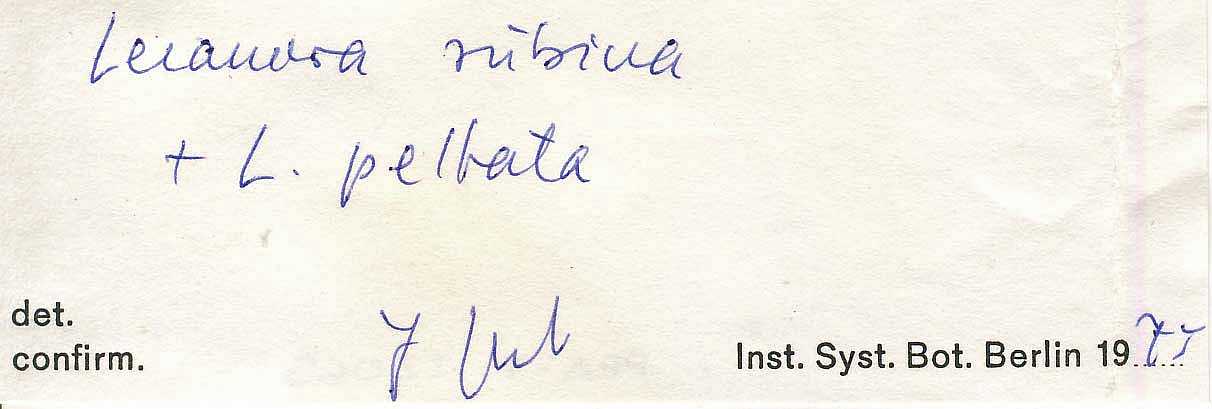 Lecanora rubina
+ L. peltata
det.
confirm.
Inst. Syst. Bot. Berlin 1975